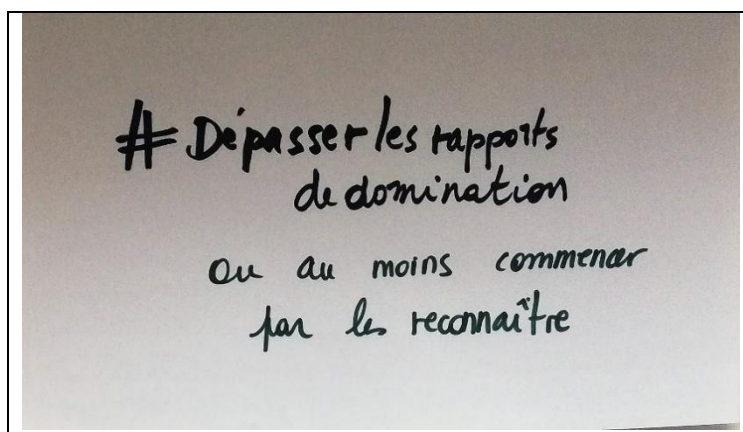 # Dépasser les rapports
de domination
ou au moins commencer
par les reconnaître